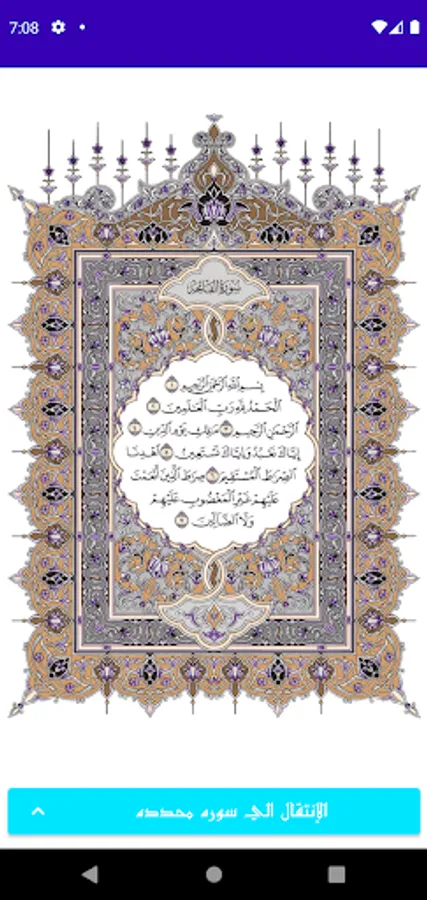 7:08
سورة الفاتحة
بِسْمِ اللَّهِ الرَّحْمَٰنِ الرَّحِيمِ ١
الْحَمْدُ لِلَّهِ رَبِّ الْعَالَمِينَ ٢
الرَّحْمَٰنِ الرَّحِيمِ ٣ مَالِكِ يَوْمِ الدِّينِ ٤
إِيَّاكَ نَعْبُدُ وَإِيَّاكَ نَسْتَعِينُ ٥ اهْدِنَا
الصِّرَاطَ الْمُسْتَقِيمَ ٦ صِرَاطَ الَّذِينَ أَنْعَمْتَ
عَلَيْهِمْ غَيْرِ الْمَغْضُوبِ عَلَيْهِمْ
وَلَا الضَّالِّينَ ٧
الإنتقال الي سوره محدده